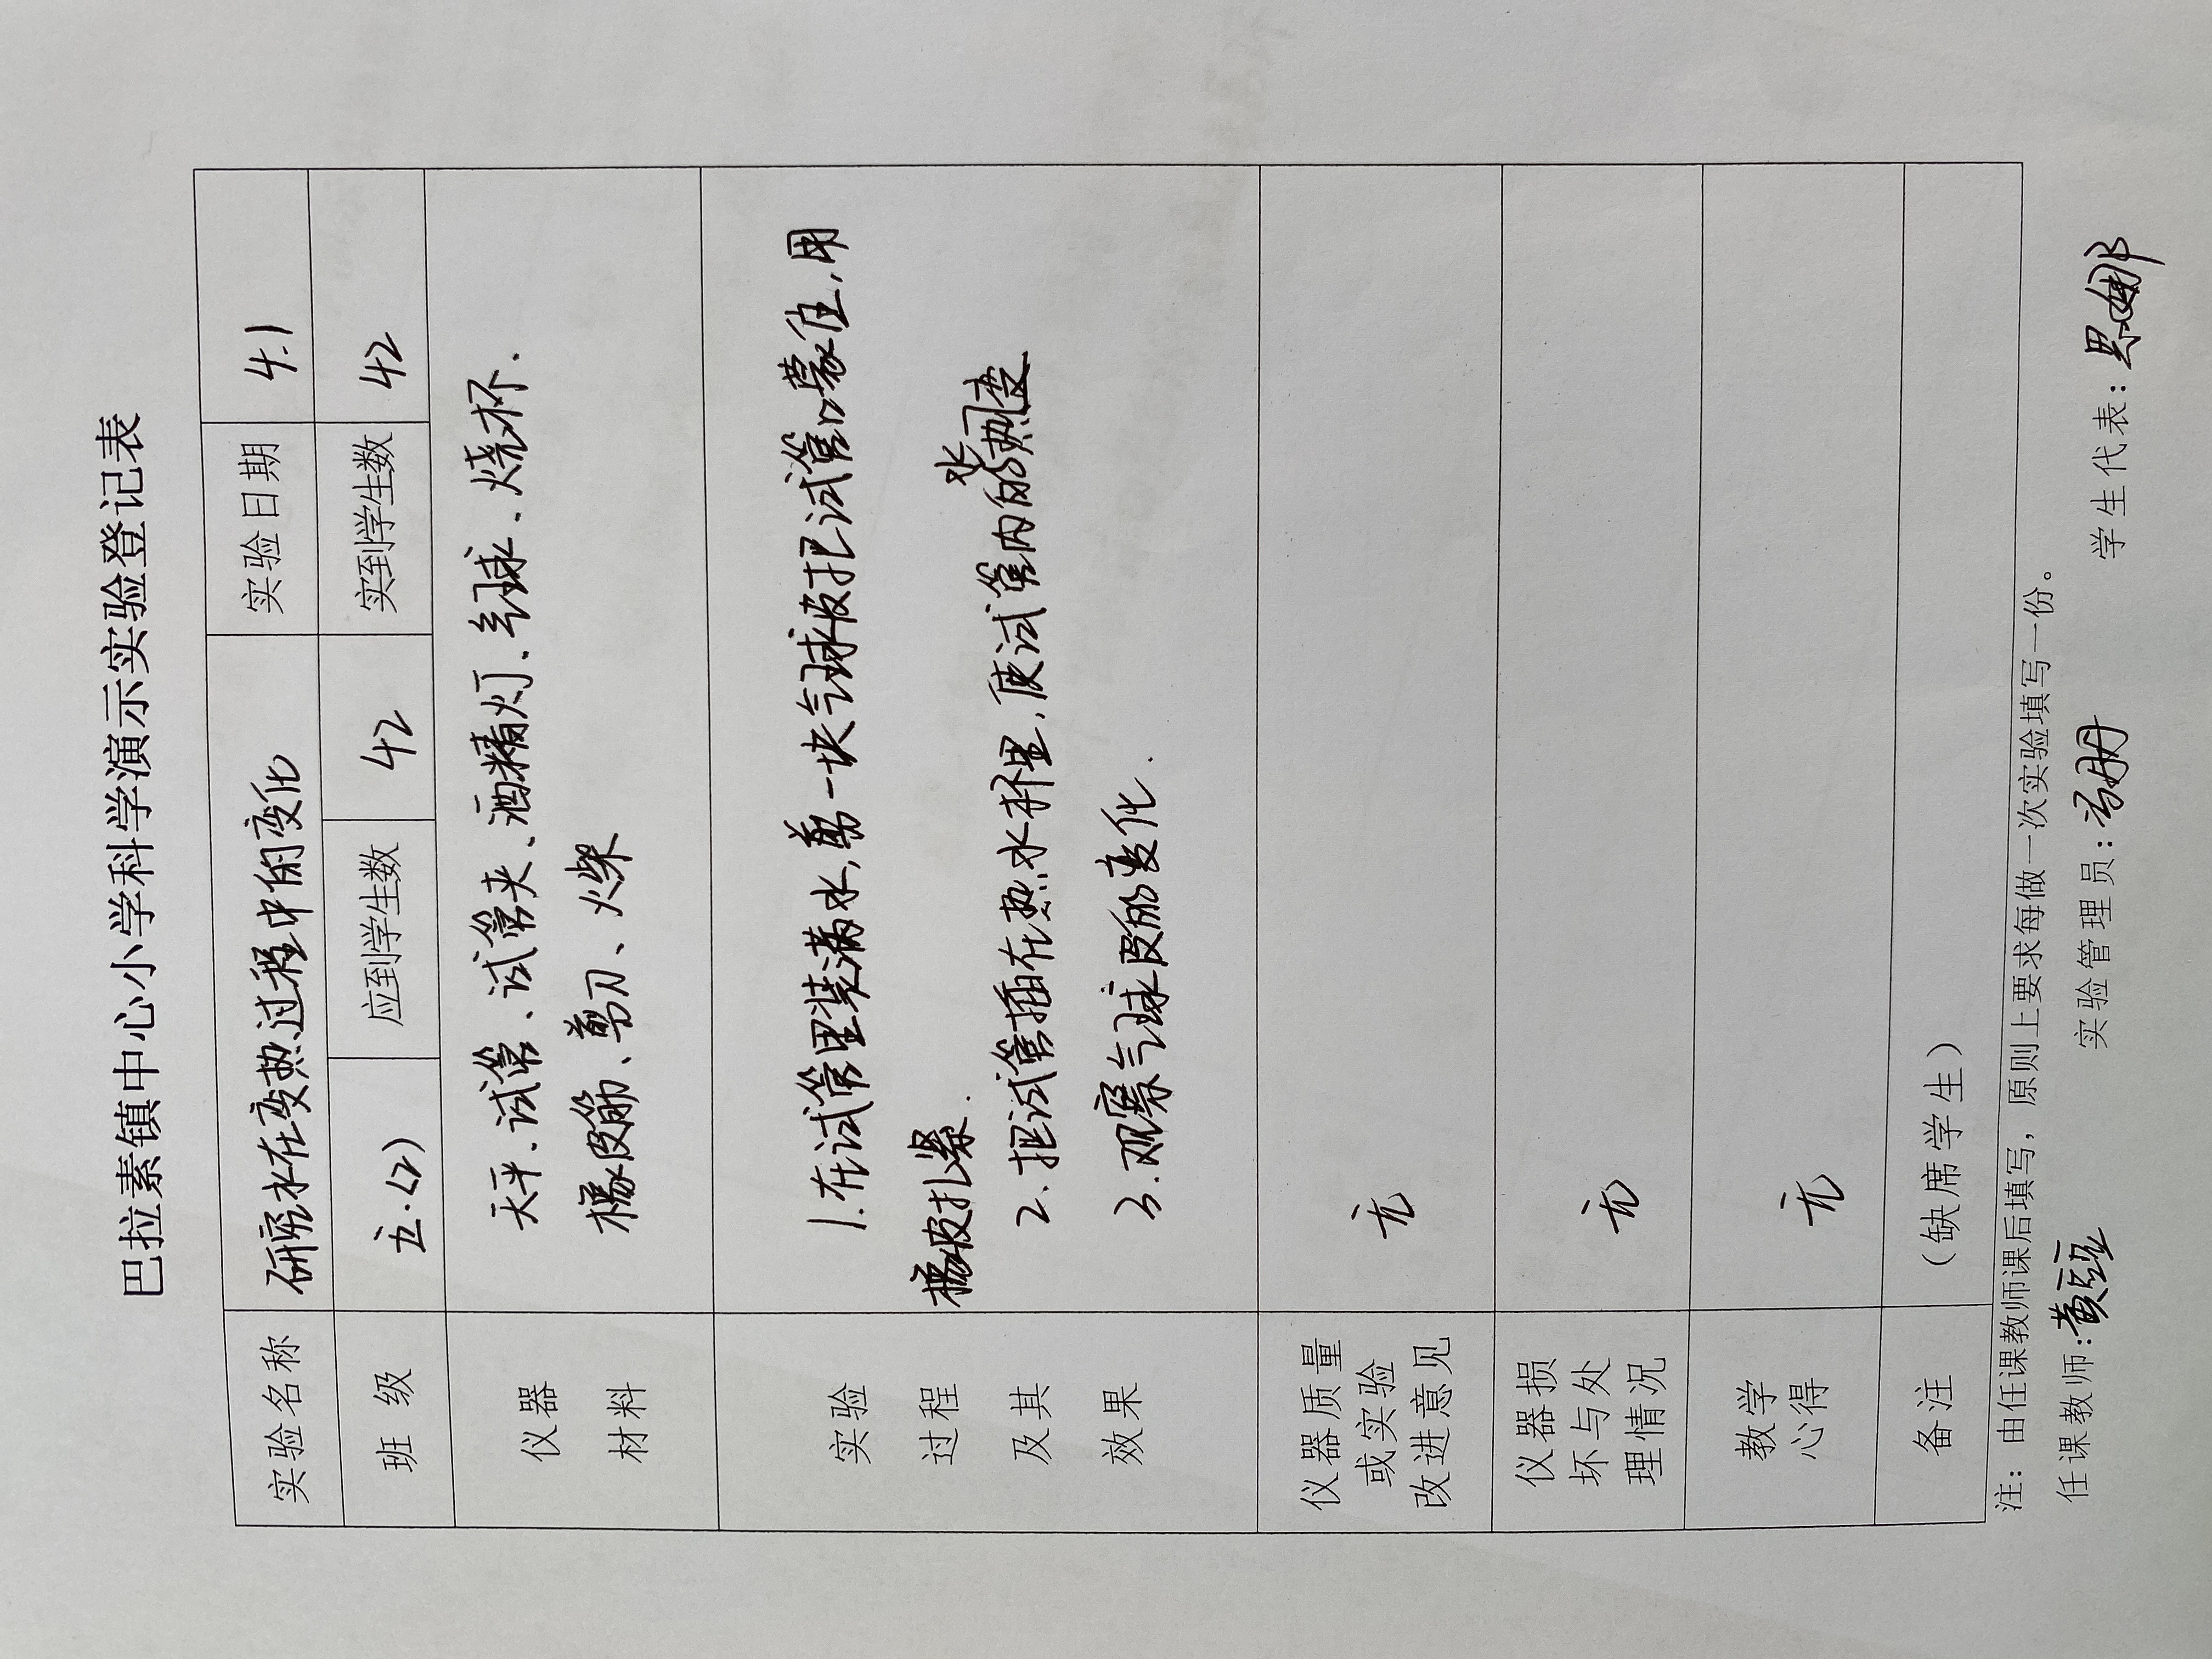 巴拉素镇中心小学科学演示实验登记表
实验名称 研究水在变热过程中的变化 实验日期 4.1
班 级 五.(2) 应到学生数 42 实到学生数 42
仪器
材料
天平、试管、试管夹、酒精灯、气球、烧杯.
橡皮筋、剪刀、火柴
实验
过程
及其
效果
1.在试管里装满水,剪一块气球皮把试管口蒙住,用
橡皮扎紧.
2.把试管插在热水杯里,使试管内的水热变
3.观察气球皮的变化.
仪器质量
或实验
改进意见
无
仪器损
坏与处
理情况
无
教学
心得
无
备注 (缺席学生)
注：由任课教师课后填写，原则上要求每做一次实验填写一份。
任课教师:黄 实验管理员: 学生代表：思娜